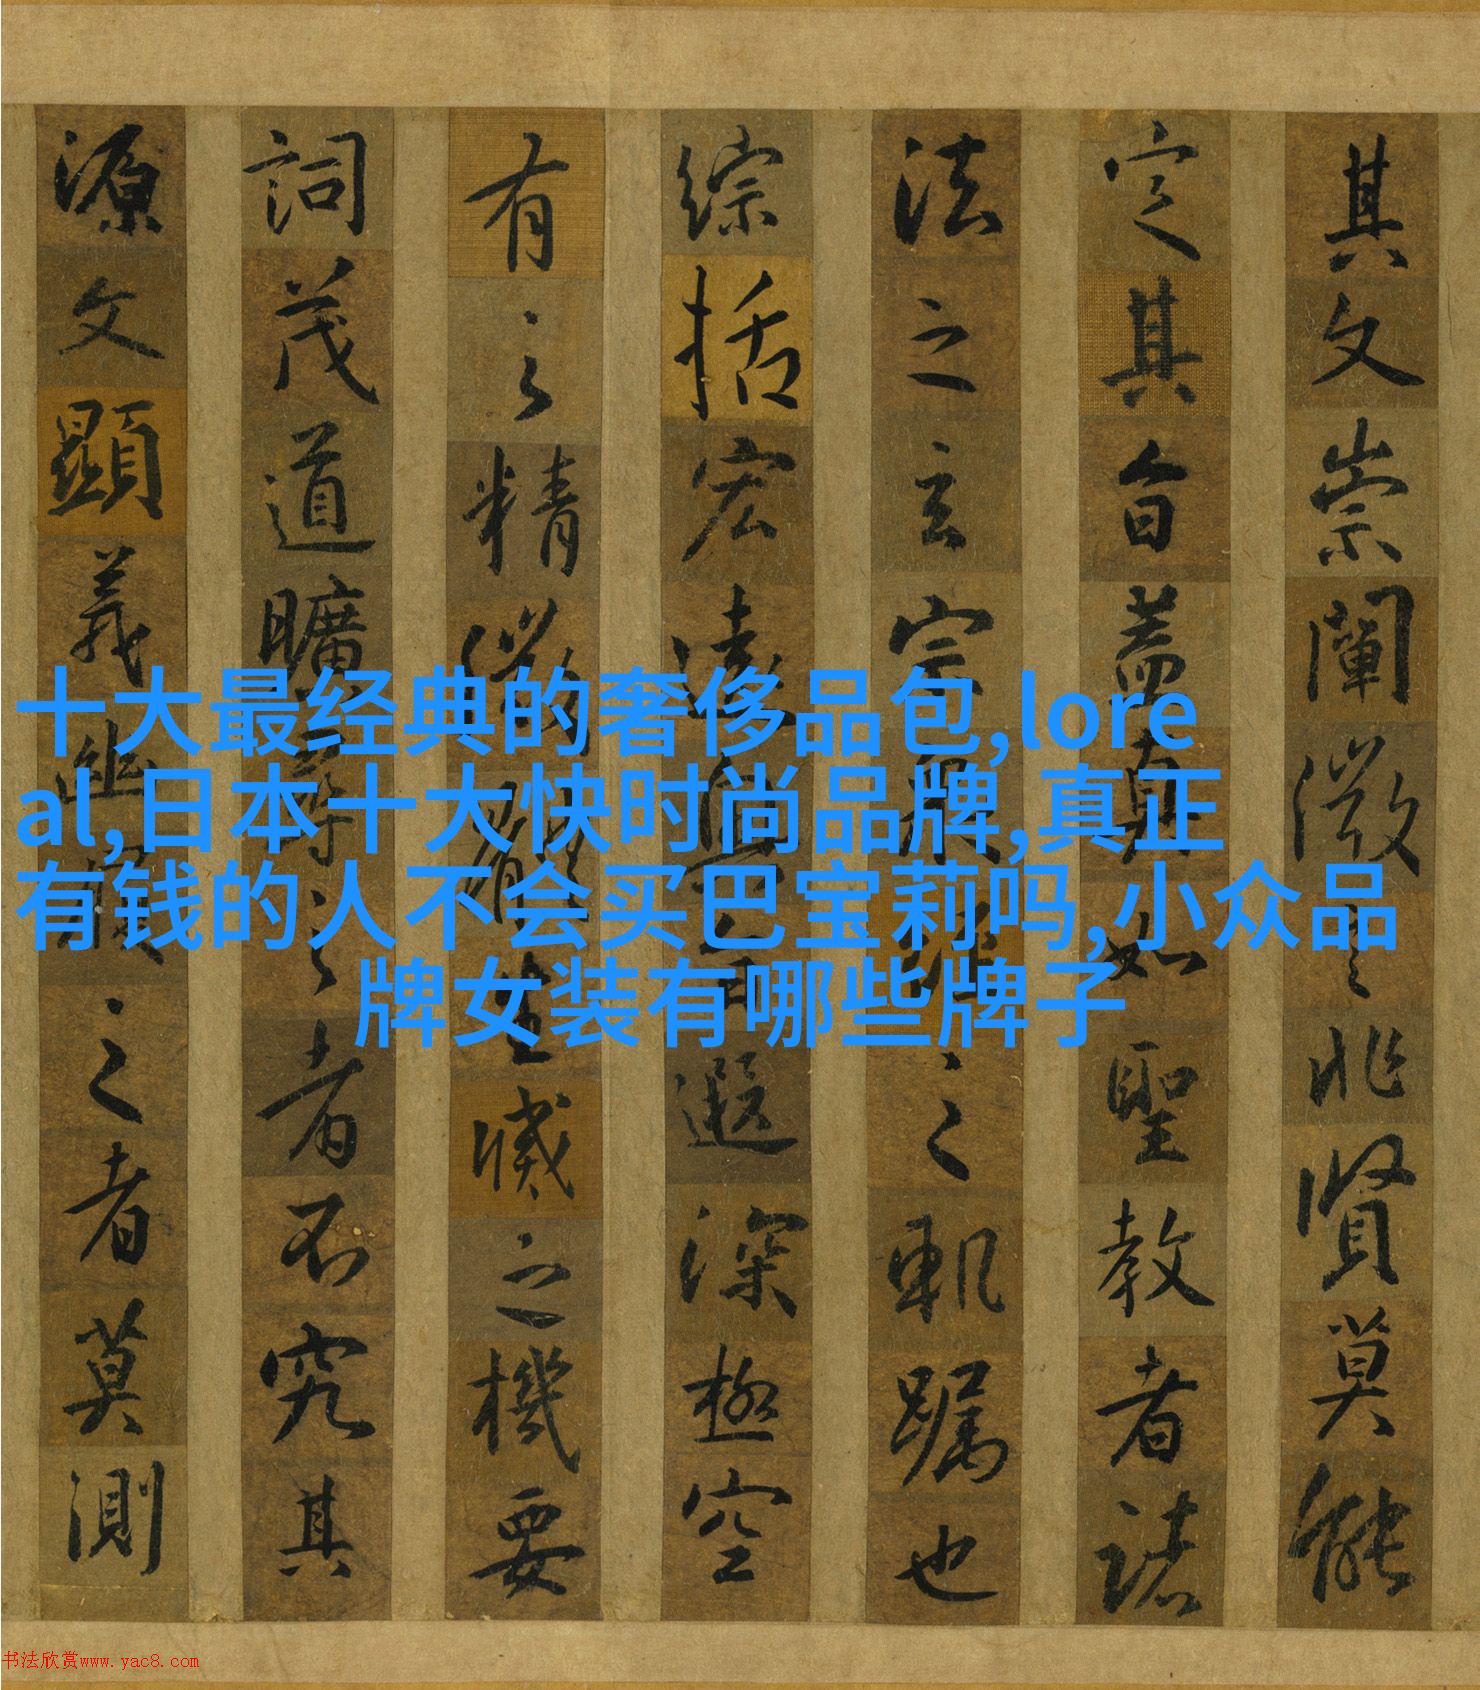 其文崇闡微言非賢莫能
定其旨蓋真如聖教者諸
法之玄宗眾經之軌躅也
綜括宏遠奧旨遐深極空
有之精微體生滅之機要
詞茂道曠尋之者不究其
源文顯義幽履之者莫測
十大最经典的奢侈品包,lore
al,日本十大快时尚品牌,真正
有钱的人不会买巴宝莉吗,小众品
牌女装有哪些牌子
书法欣赏www.yac8.com